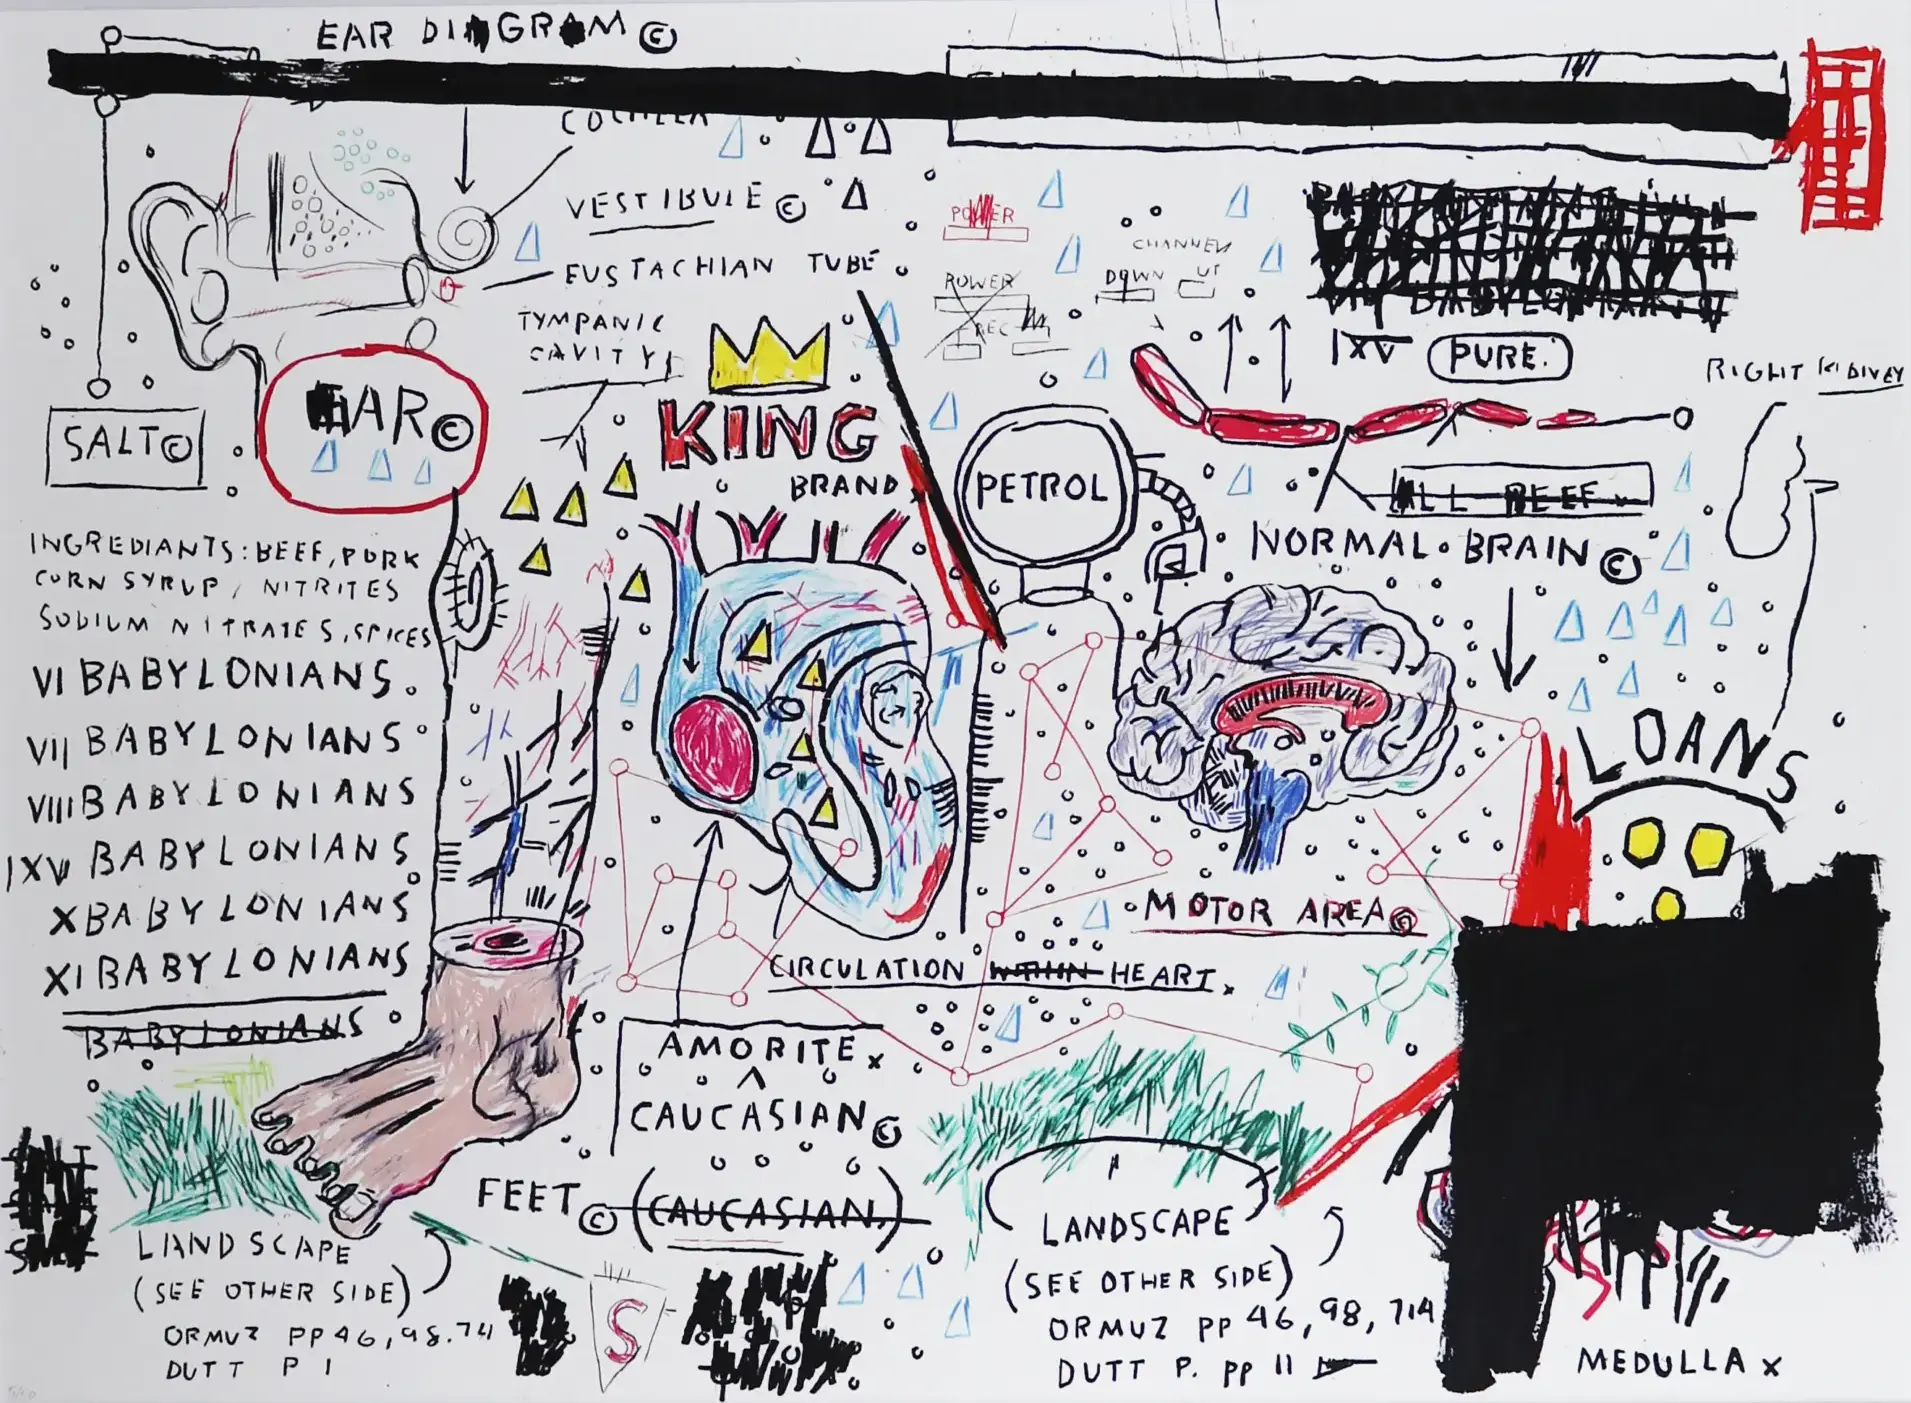 EAR DIAGRAM ©
COCHLEA
VESTIBULE ©
EUSTACHIAN TUBE
TYMPANIC
CAVITY
POWER
CHANNEL
POWER
DOWN
UP
REC
BABYLONIANS
IXV
PURE.
RIGHT KIDNEY
SALT ©
EAR ©
KING
BRAND
PETROL
ALL BEEF
NORMAL BRAIN ©
INGREDIANTS: BEEF, PORK
CORN SYRUP, NITRITES
SODIUM NITRATES, SPICES
VI BABYLONIANS
VII BABYLONIANS
VIII BABYLONIANS
IXV BABYLONIANS
X BABYLONIANS
XI BABYLONIANS
BABYLONIANS
LOANS
MOTOR AREA ©
CIRCULATION WITHIN HEART
AMORITE
CAUCASIAN ©
FEET © (CAUCASIAN.)
LANDSCAPE
(SEE OTHER SIDE)
ORMUZ PP 46, 98. 74
DUTT P 1
S
LANDSCAPE
(SEE OTHER SIDE)
ORMUZ PP 46, 98, 714
DUTT P. PP 11
MEDULLA X